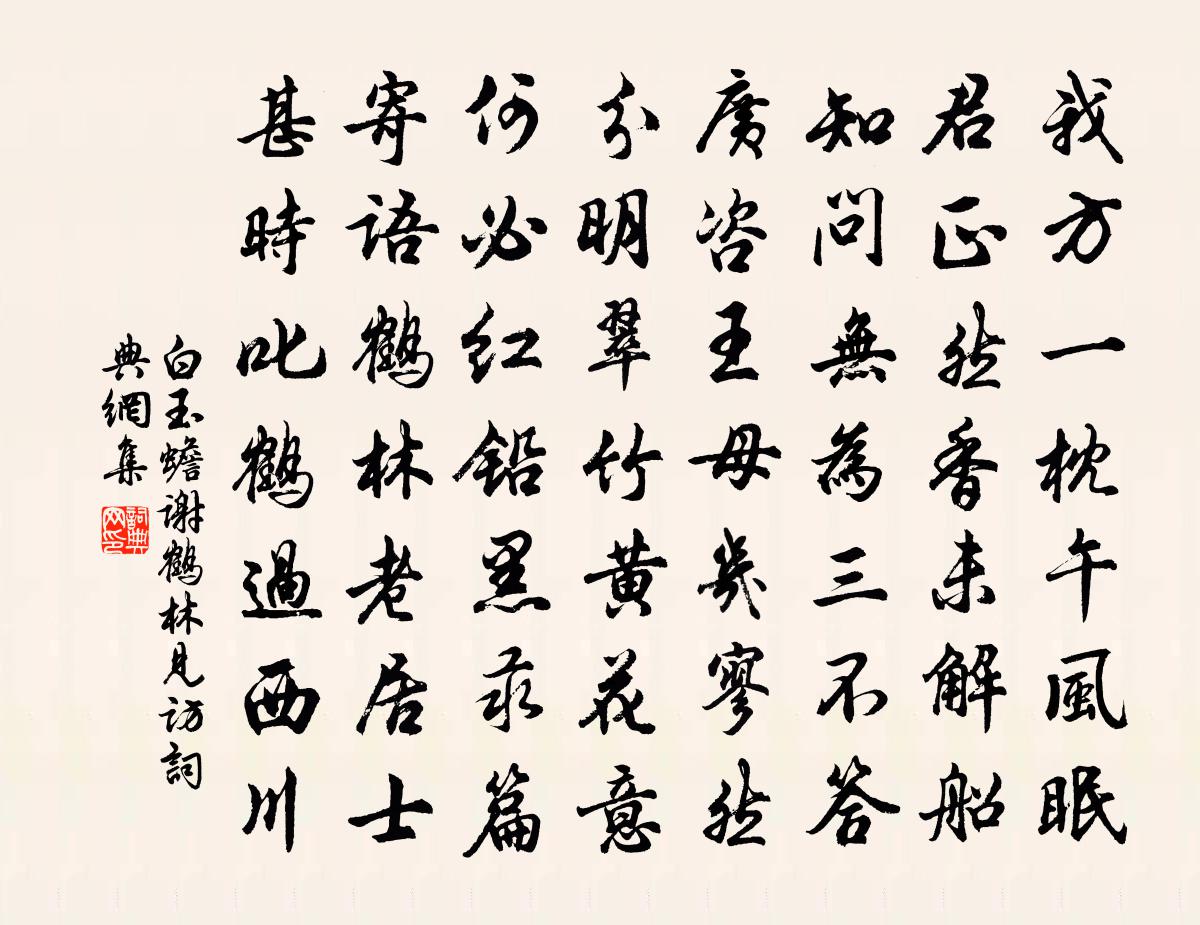 我方一枕午風眠
君正然香未解船
知問無為三不答
廣咨王母幾寥然
分明翠竹黃花意
何必紅鉛黑汞篇
寄語鶴林老居士
甚時叱鶴過西川
白玉蟾謝鶴林見訪詞
典網集
詞典
网印